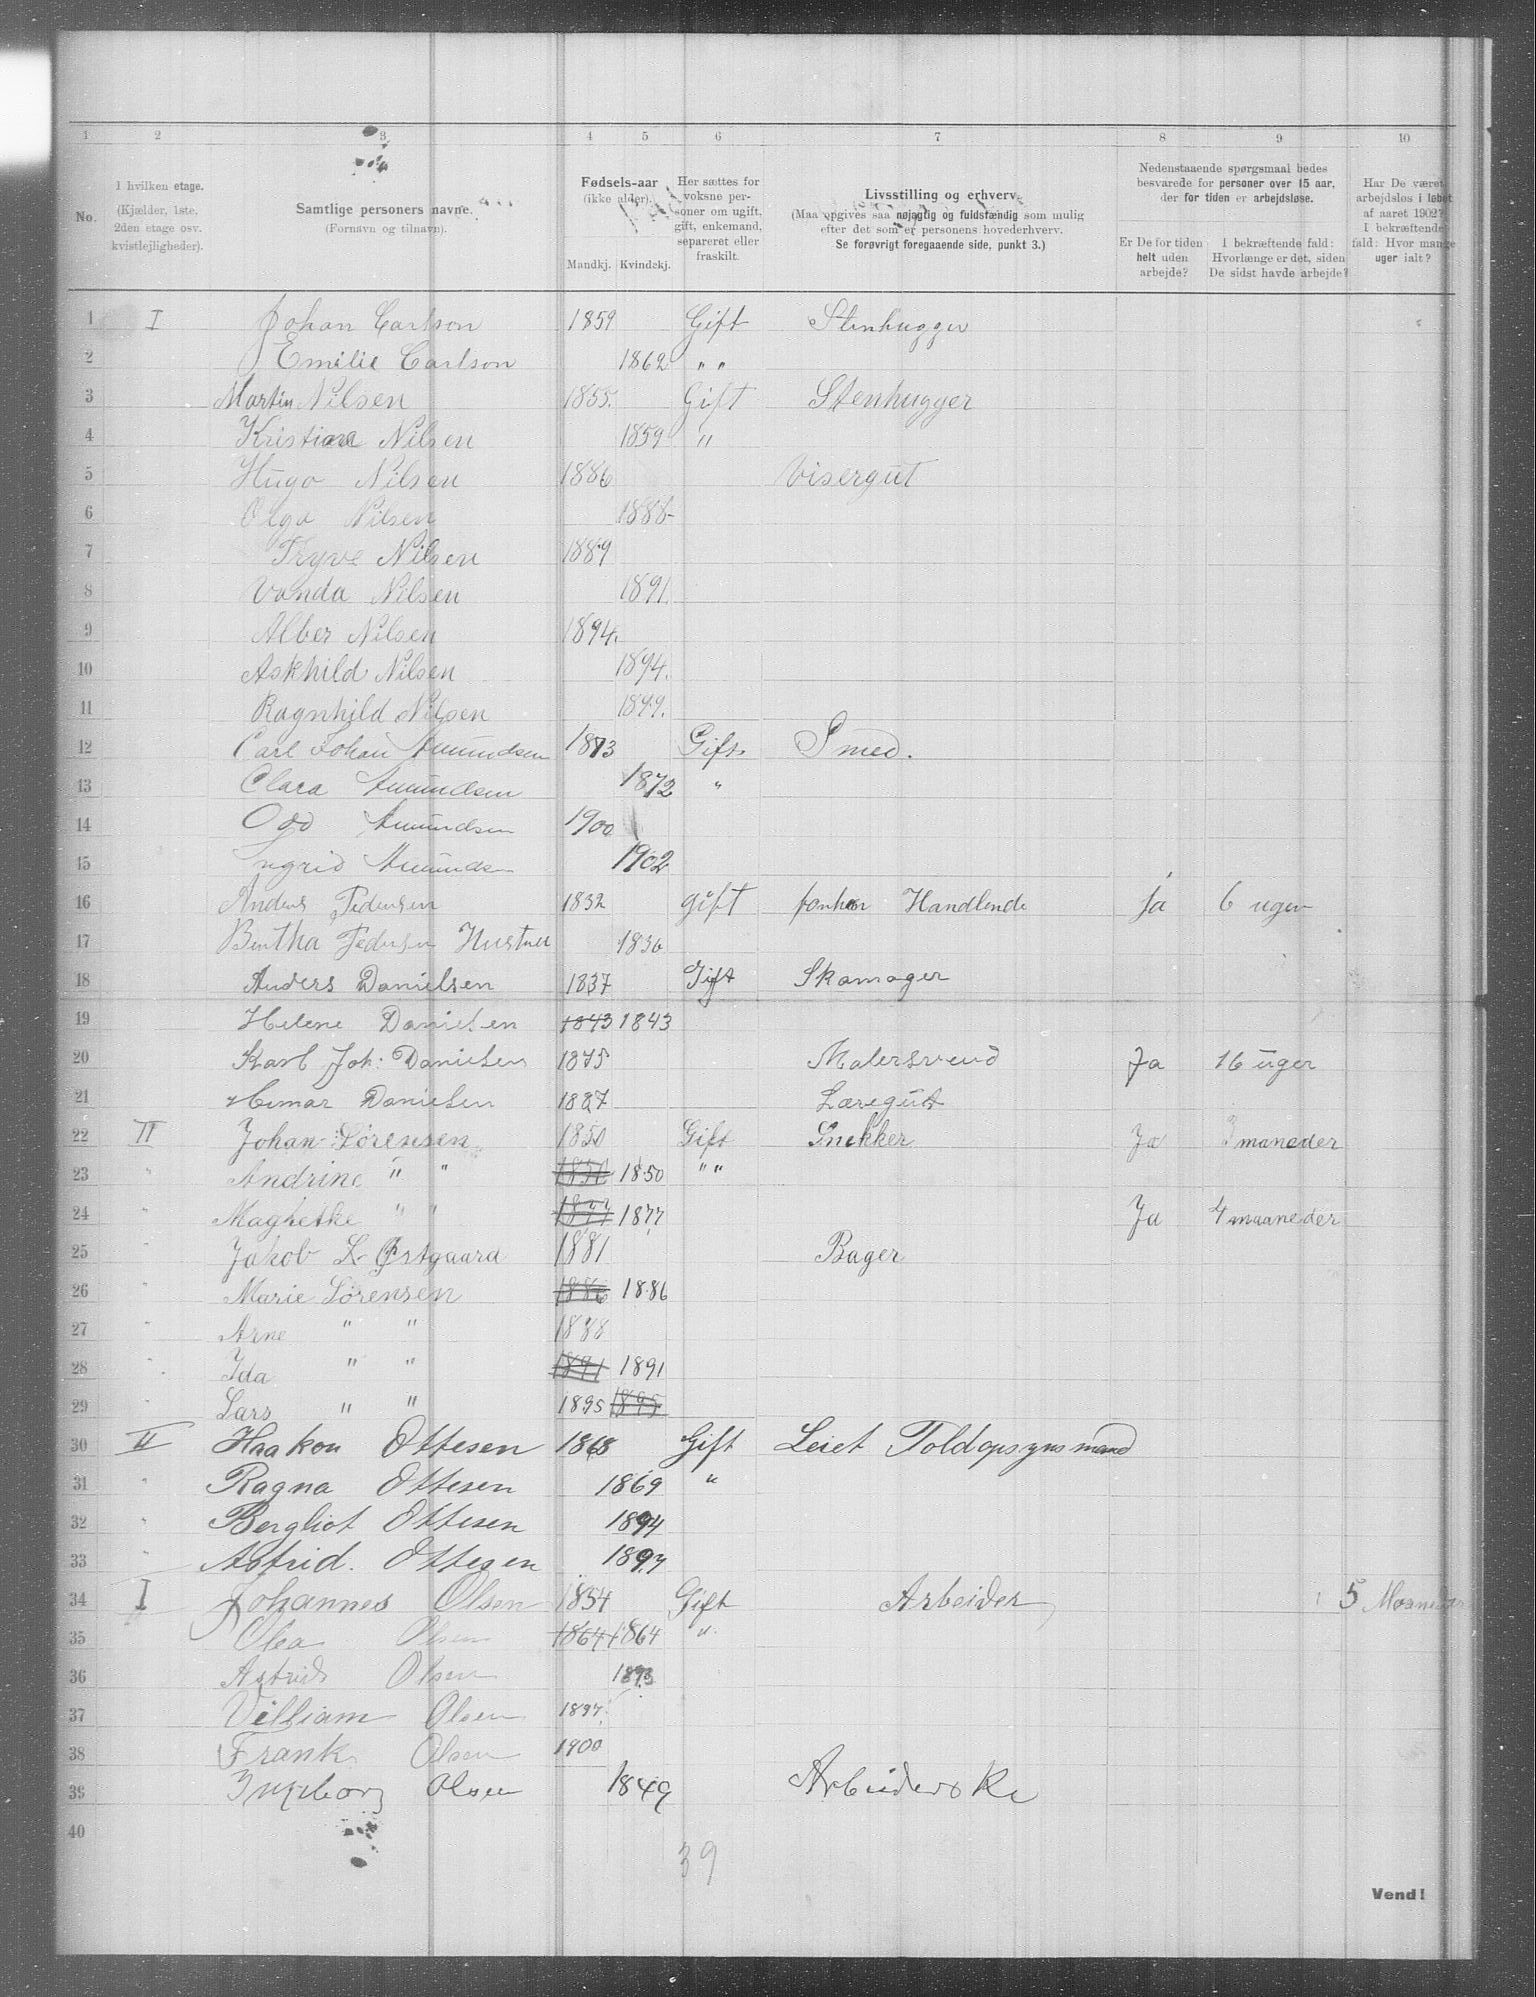 1 2 3 4 5 6 7 8 9 10
No.
I hvilken etage.
(Kjælder, 1ste,
2den etage osv.
kvistlejligheder).
Samtlige personers navne.
(Fornavn og tilnavn).
Fødsels-aar
(ikke alder).
Mandkj. Kvindekj.
Her sættes for
voksne per-
soner om ugift,
gift, enkemand,
separeret eller
fraskilt.
Livsstilling og erhverv.
(Maa opgives saa nøjagtig og fuldstændig som mulig
efter det som er personens hovederhverv.
Se forøvrigt foregaaende side, punkt 3.)
Nedenstaaende spørgsmaal bedes
besvarede for personer over 15 aar,
der for tiden er arbejdsløse.
Er De for tiden
helt uden
arbejde?
I bekræftende fald:
Hvorlænge er det, siden
De sidst havde arbejde?
Har De været
arbejdsløs i løbet
af aaret 1902?
I bekræftende
fald: Hvor mange
uger ialt?
1 I Johan Carlson 1859 Gift Stenhugger
2 Emilie Carlson 1862 " "
3 Martin Nilsen 1855. Gift Stenhugger
4 Kristiana Nilsen 1859 "
5 Hugo Nilsen 1886 Visergut
6 Olga Nilsen 1888
7 Tryve Nilsen 1889
8 Vanda Nilsen 1891.
9 Alber Nilsen 1894.
10 Askhild Nilsen 1894.
11 Ragnhild Nilsen 1899.
12 Carl Johan Amundsen 1873 Gift Smed.
13 Clara Amundsen 1872 "
14 Odd Amundsen 1900
15 Ingrid Amunds 1902
16 Anders Pedersen 1832 gift Handlende Ja 6 uger
17 Bertha Pedersen Hustru 1836
18 Anders Danielsen 1837 Gift Skomager
19 Helene Danielsen 1843 1843
20 Karl Joh: Danielsen 1875 Malersvend Ja 16 uger
21 Danielsen 1887 Læregut
22 II Johan Sørensen 1850 Gift Snekker Ja 3 maneder
23 " Andrine " " 1850 1850 " "
24 " Maghetke " " 1877 1877 Ja 4 maaneder
25 " Jakob L. Østgaard 1881 Bager
26 " Marie Sørensen 1886 1886
27 " Arne " " 1888
28 " Ida " " 1891 1891
29 " Lars " " 1895 1895
30 II Haakon Ottesen 1868 Gift Leiet Toldopsynsmand
31 " Ragna Ottesen 1869 "
32 " Bergliot Ottesen 1894
33 " Astrid. Ottesen 1897
34 I Johannes Olsen 1854 Gift Arbeider 5 Maaneder
35 Olea Olsen 1864 1864 "
36 Astrid Olsen 1893
37 Villiam Olsen 1897
38 Frank Olsen 1900
39 Ingeborg Olsen 1849 Arbeiderske
40
39
Vend!